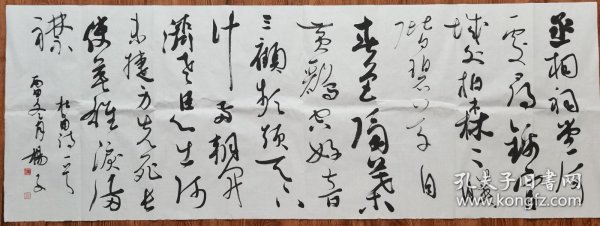 丞相祠堂何
處尋錦官
城外柏森々
階碧草自
春色隔葉
黄鸝空好音
三顧頻煩天下
计两朝開
濟老臣心出師
未捷身先死長
使英雄淚滿
襟
杜甫詩一首
孔夫子旧书网
www.kongfz.com